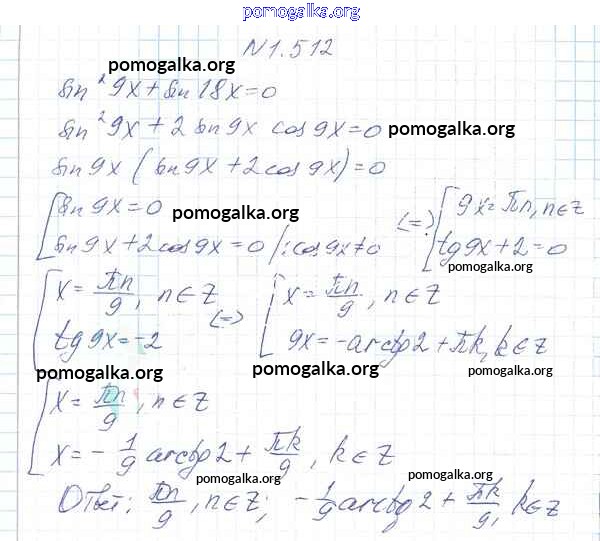 pomogalka.org
N1.512
pomogalka.org
sin²9x + sin 18x = 0
sin²9x + 2 sin 9x cos 9x = 0 pomogalka.org
sin 9x (sin 9x + 2 cos 9x) = 0
[ sin 9x = 0 pomogalka.org
sin 9x + 2 cos 9x = 0 /: cos 9x ≠ 0
(=) [ 9x = πn, n ∈ Z
tg 9x + 2 = 0
pomogalka.org
[ x = πn/9, n ∈ Z
tg 9x = -2
(=) [ x = πn/9, n ∈ Z
9x = -arctg 2 + πk, k ∈ Z
pomogalka.org pomogalka.org pomogalka.org
[ x = πn/9, n ∈ Z
x = - 1/9 arctg 2 + πk/9, k ∈ Z
pomogalka.org pomogalka.org
Ответ: πn/9, n ∈ Z; - 1/9 arctg 2 + πk/9, k ∈ Z
pomogalka.org